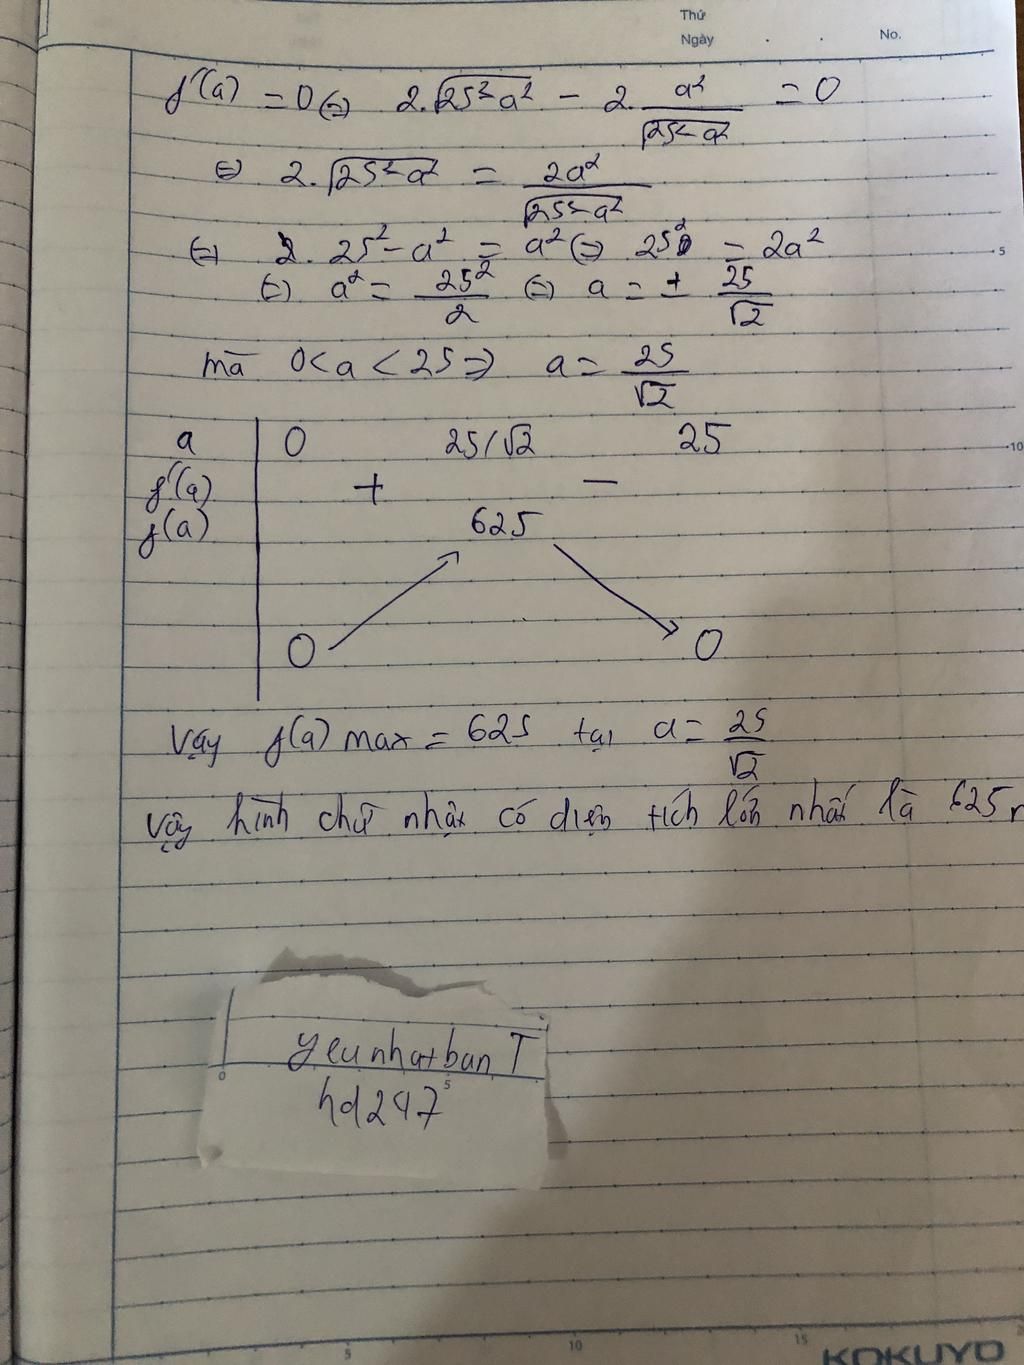 Thứ
Ngày . . No.
f'(a) = 0 (=) 2.√(25²-a²) - 2. a²/√(25²-a²) = 0
(=) 2.√(25²-a²) = 2a²/√(25²-a²)
(=) 25²-a² = a² (=) 25² = 2a²
5
(=) a² = 25²/2 (=) a = ± 25/√2
mà 0<a<25 => a = 25/√2
a 0 25/√2 25
10
f'(a) + -
f(a) 625
0 0
Vậy f(a) max = 625 tại a = 25/√2
Vậy hình chữ nhật có diện tích lớn nhất là 625
yeunhatban T
0 5
hd247
5 10 15
KOKUYO